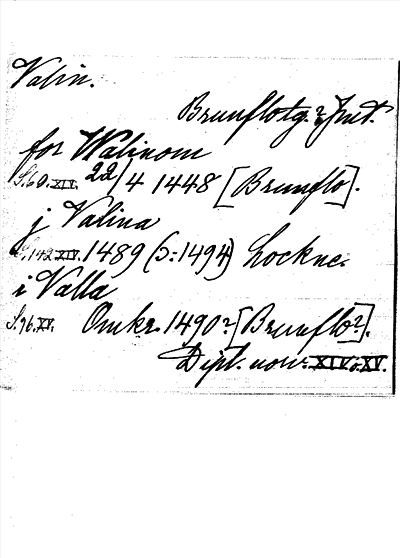 Valin.
Brunflotg. ? Jmt.
for Walinom
S. 60. XIV. 22/4 1448 [Brunflo].
j Valina
S. 142 XIV. 1489 (S: 1494) Lockne.
i Valla
S. 96. XV. Omkr. 1490? [Brunflo?].
Dipl. norv. XIV. XV.